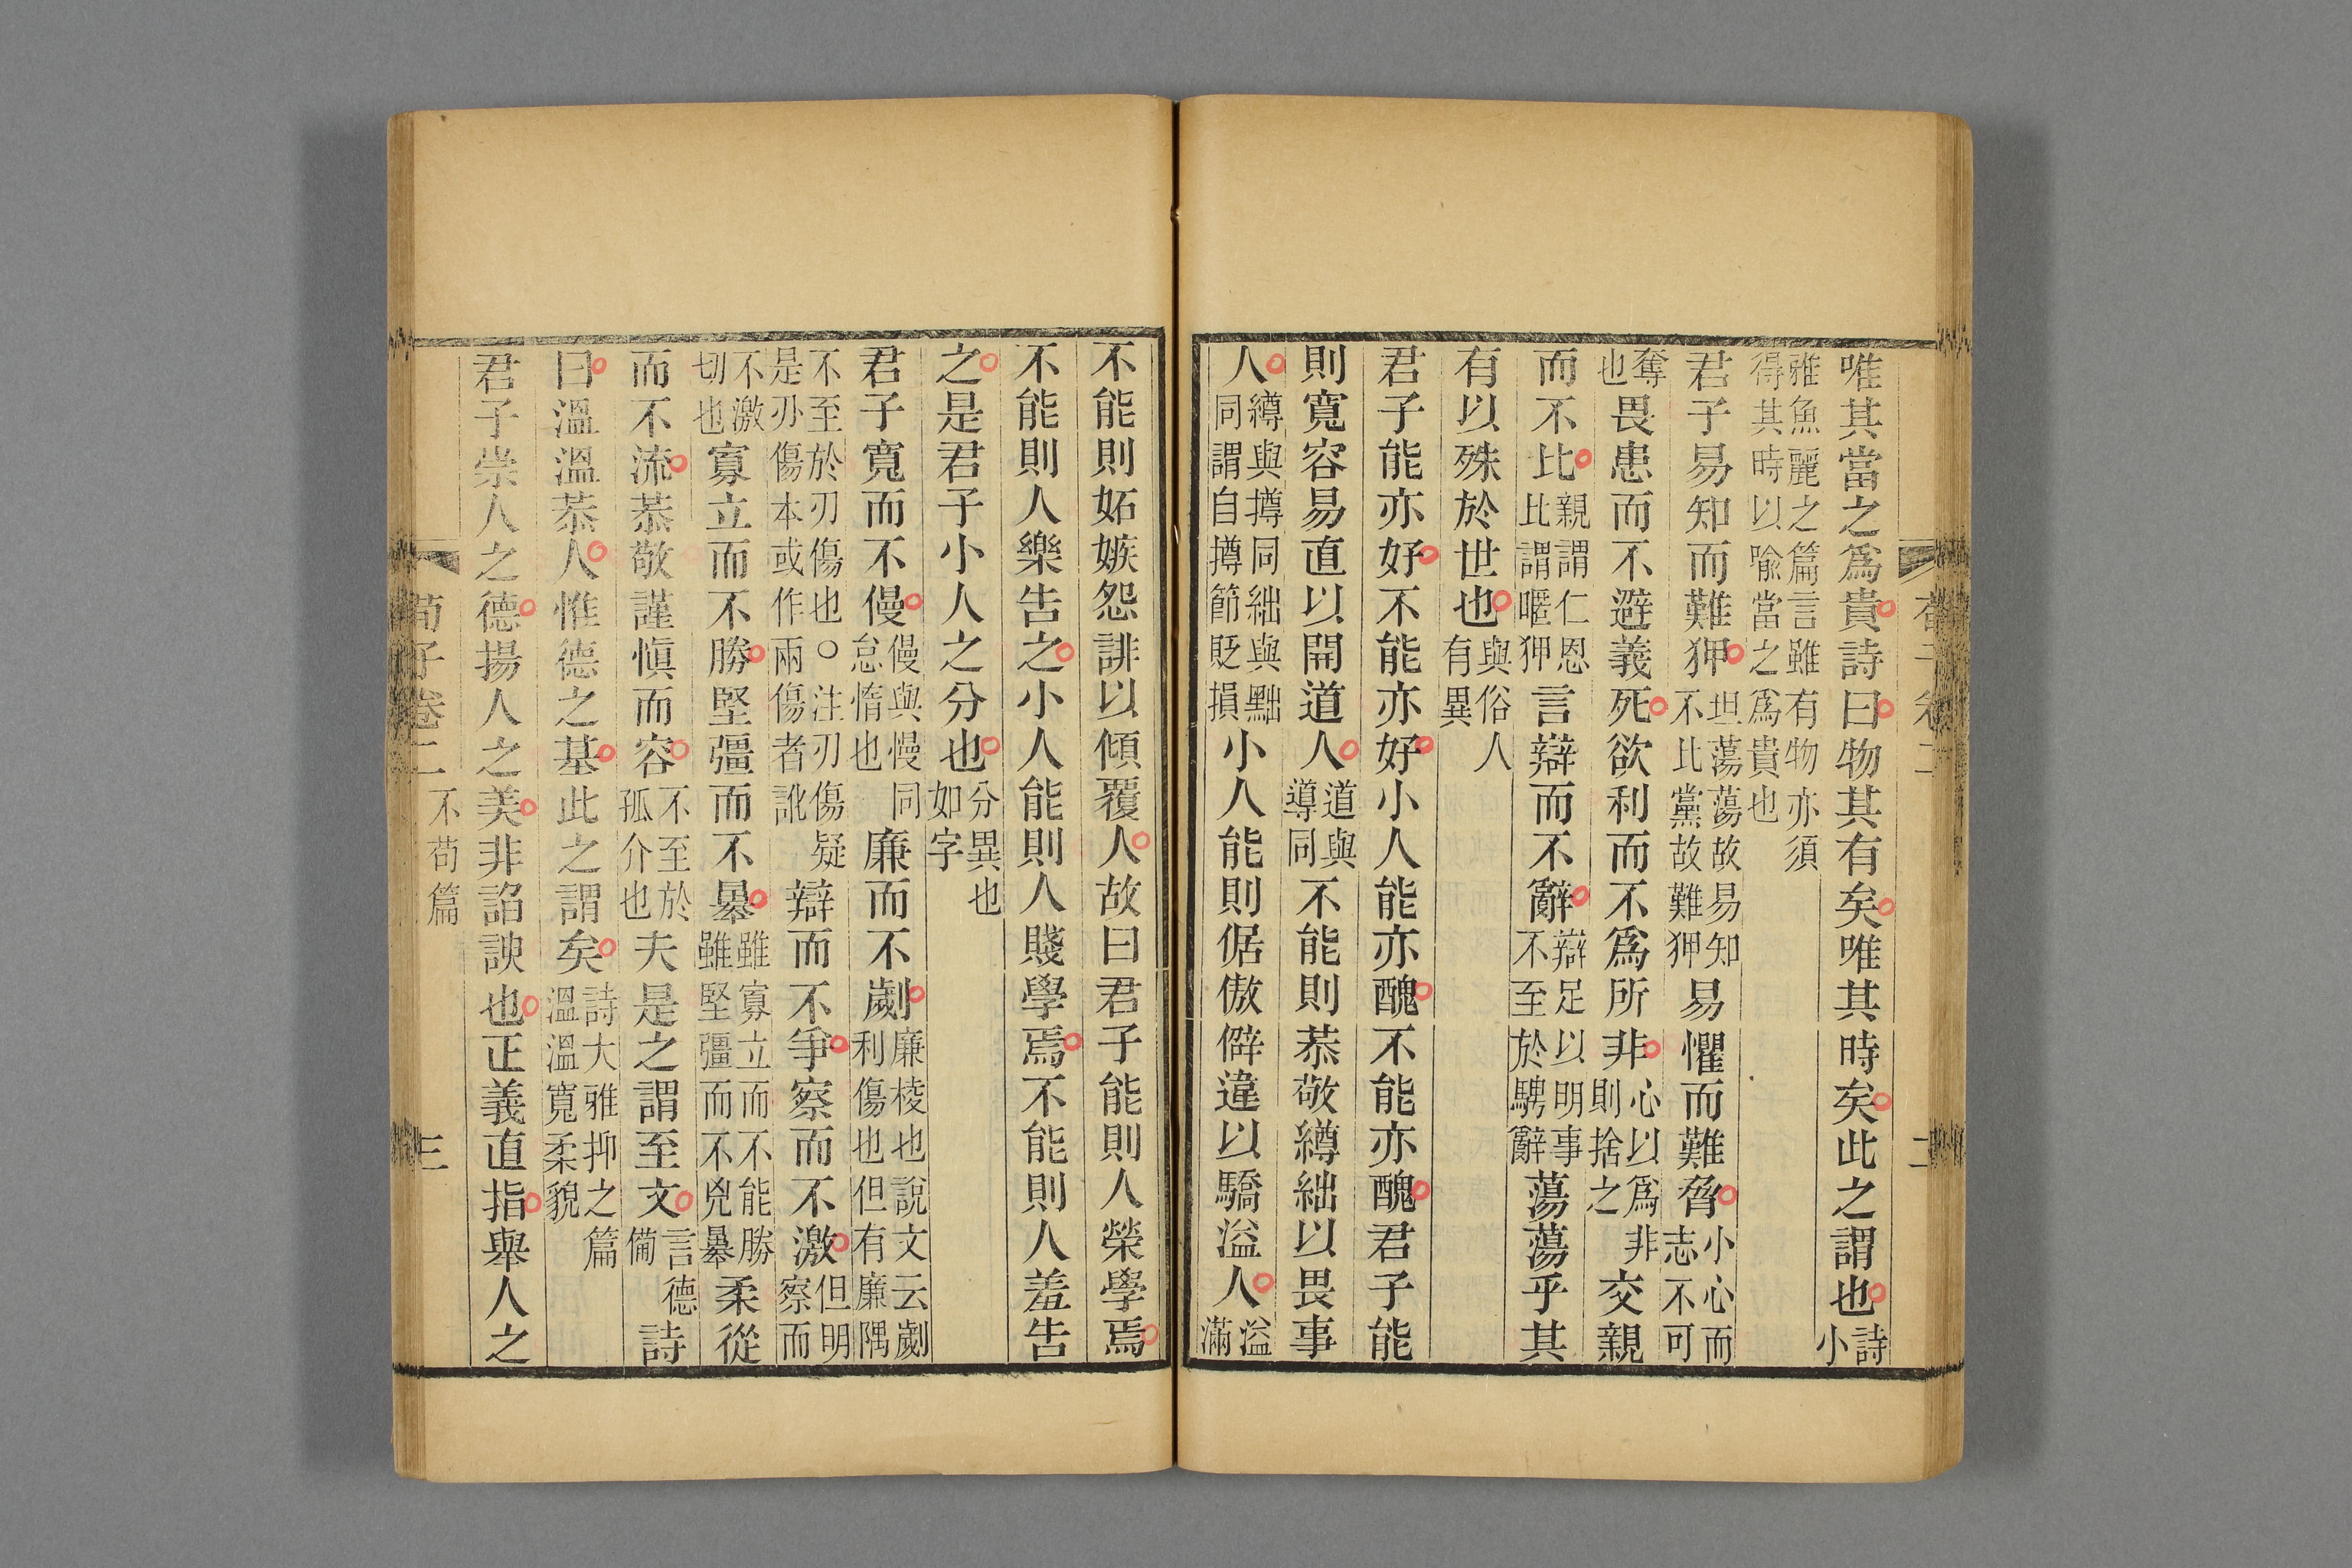 唯其當之爲貴詩曰物其有矣唯其時矣此之謂也詩小
雅魚麗之篇言雖有物亦須得其時以喻當之爲貴也
君子易知而難狎坦蕩蕩故易知不比黨故難狎易懼而難脅小心而志不可
奪也畏患而不避義死欲利而不爲所非心以爲非則捨之交親
而不比親謂仁恩比謂暱狎言辯而不辭辯足以明事不至於騁辭蕩蕩乎其
有以殊於世也與俗人有異
君子能亦好不能亦好小人能亦醜不能亦醜君子能
則寬容易直以開道人道與導同不能則恭敬繜絀以畏事
人繜與撙同絀與黜同謂自撙節貶損小人能則倨傲僻違以驕溢人溢滿
不能則妬嫉怨誹以傾覆人故曰君子能則人榮學焉
不能則人樂告之小人能則人賤學焉不能則人羞告
之是君子小人之分也分異也如字
君子寬而不僈僈與慢同怠惰也廉而不劌廉棱也說文云劌利傷也但有廉隅
不至於刃傷也○注刃傷疑是刅傷本或作兩傷者訛辯而不爭察而不激但明察而
不激切也寡立而不勝堅彊而不暴雖寡立而不能勝雖堅彊而不兇暴柔從
而不流恭敬謹愼而容不至於孤介也夫是之謂至文言德備詩
曰溫溫恭人惟德之基此之謂矣詩大雅抑之篇溫溫寬柔貌
君子崇人之德揚人之美非諂諛也正義直指舉人之
荀子卷二 不苟篇 三